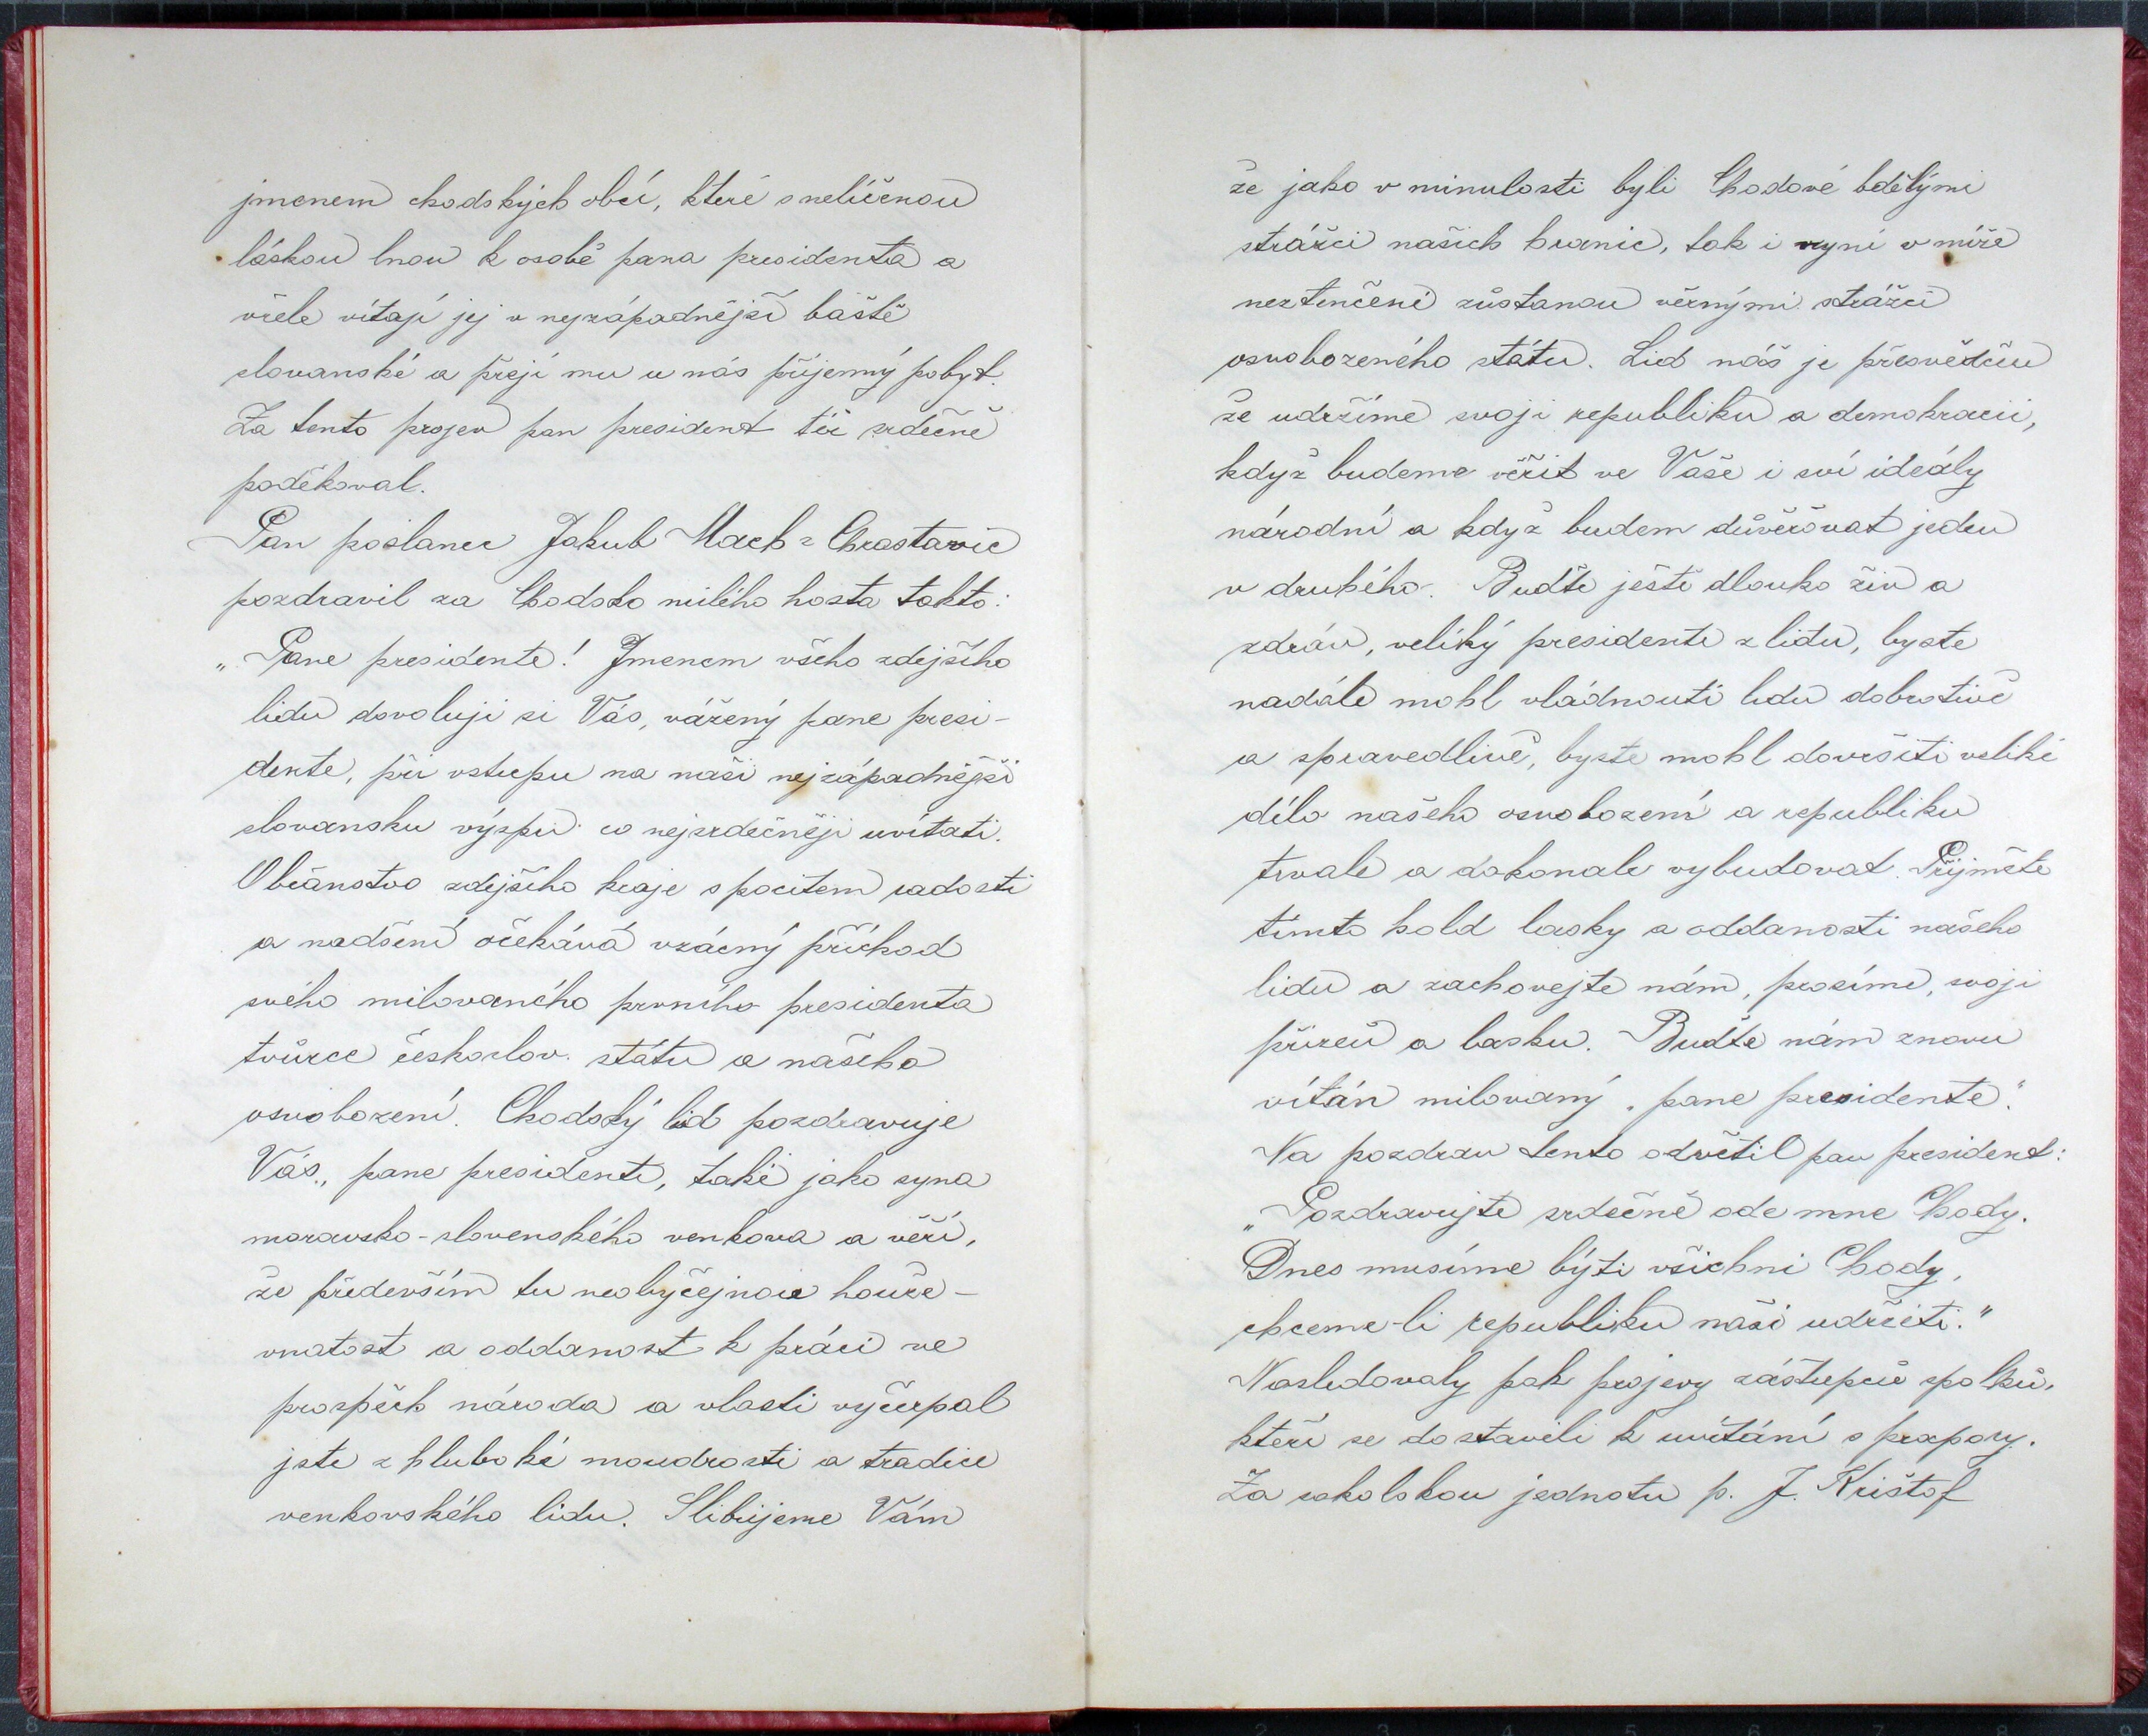 jmenem chodských obcí, které s nelíčenou
láskou lnou k osobě pana presidenta a
vřele vítají jej v nejzápadnější baště
slovanské a přejí mu u nás příjemný pobyt.
Za tento projev pan president též srdečně
poděkoval.
Pan poslanec Jakub Mach z Chrastavic
pozdravil za Chodsko milého hosta takto:
„Pane presidente! Jmenem všeho zdejšího
lidu dovoluji si Vás, vážený pane presi-
dente, při vstupu na naši nejzápadnější
slovansku výspu co nejsrdečněji uvítati.
Občanstvo zdejšího kraje s pocitem radosti
a nadšení očekává vzácný příchod
svého milovaného prvního presidenta
tvůrce českoslov. státu a našeho
osvobození. Chodský lid pozdravuje
Vás, pane presidente, také jako syna
moravsko-slovenského venkova a věří,
že především tu neobyčejnou houže-
vnatost a oddanost k práci ve
prospěch národa a vlasti vyčerpal
jste z hluboké moudrosti a tradice
venkovského lidu. Slibujeme Vám
že jako v minulosti byli Chodové bdělými
strážci našich hranic, tak i nyní v míře
neztenčené zůstanou věrnými strážci
osvobozeného státu. Lid náš je přesvědčen
že udržíme svoji republiku a demokracii,
když budeme věřit ve Vaše i své ideály
národní a když budem důvěřovat jeden
v druhého. Buďte ještě dlouho živ a
zdráv, veliký presidente z lidu, byste
nadále mohl vládnouti lidu dobrotivě
a spravedlivě, byste mohl dovršiti veliké
dílo našeho osvobození a republiku
trvale a dokonale vybudovat. Přijměte
tímto hold lasky a oddanosti našeho
lidu a zachovejte nám, prosíme, svoji
přízeň a lasku. Buďte nám znovu
vítán milovaný pane presidente."
Na pozdrav tento odvětil pan president:
„Pozdravujte srdečně ode mne Chody.
Dnes musíme býti všichni Chody,
chceme-li republiku naši udržeti."
Nasledovaly pak projevy zástupců spolků,
kteří se dostavili k uvítání s prapory.
Za sokolskou jednotu p. J. Krištof